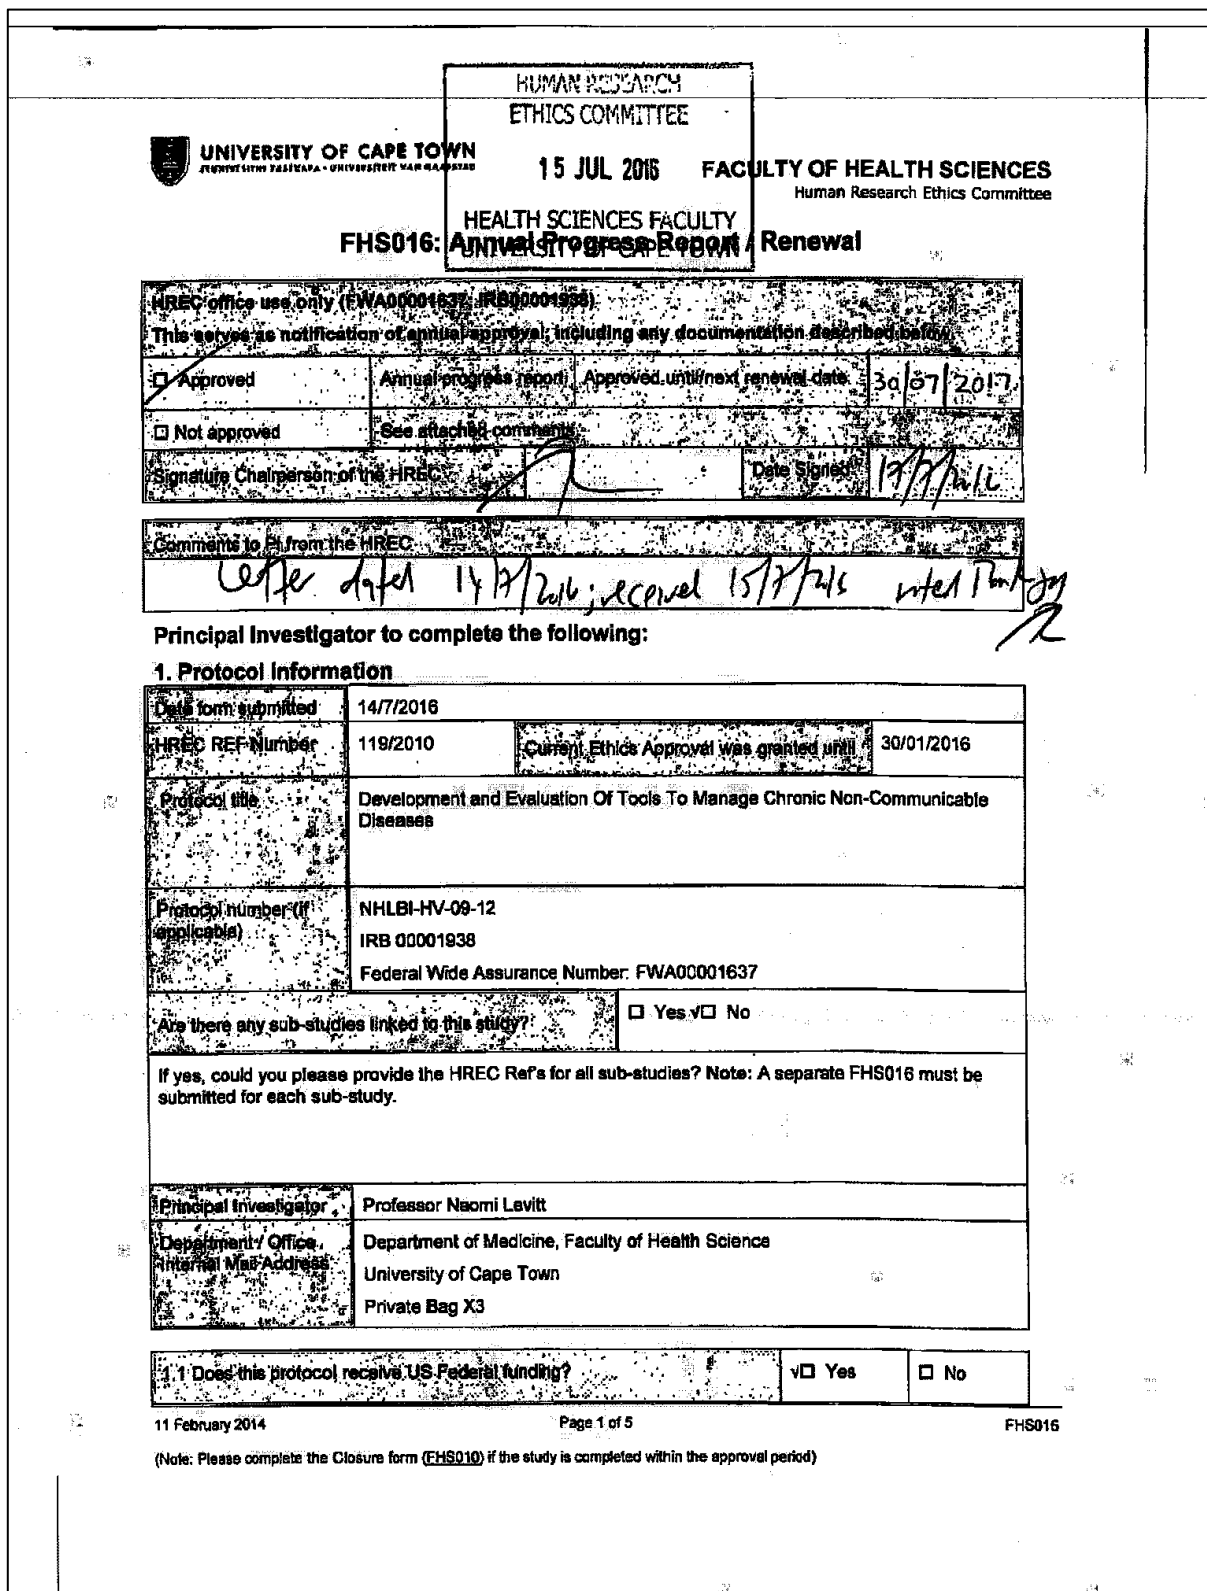 HUMAN RESEARCH
ETHICS COMMITTEE
15 JUL 2016
HEALTH SCIENCES FACULTY
UNIVERSITY OF CAPE TOWN
UNIVERSITY OF CAPE TOWN
FACULTY OF HEALTH SCIENCES
Human Research Ethics Committee
FHS016: Annual Progress Report / Renewal
HREC office use only (FWA00001637; IRB00001938)
This serves as notification of annual approval, including any documentation described below.
Approved Annual progress report Approved until/next renewal date 30/07/2017
Not approved See attached comments
Signature Chairperson of the HREC Date Signed
Comments to PI from the HREC
Letter dated 14/7/2016; received 15/7/2016 noted
Principal Investigator to complete the following:
1. Protocol Information
Date form submitted 14/7/2016
HREC REF Number 119/2010 Current Ethics Approval was granted until 30/01/2016
Protocol title Development and Evaluation Of Tools To Manage Chronic Non-Communicable
Diseases
Protocol number (if NHLBI-HV-09-12
applicable) IRB 00001938
Federal Wide Assurance Number: FWA00001637
Are there any sub-studies linked to this study? □ Yes √□ No
If yes, could you please provide the HREC Ref's for all sub-studies? Note: A separate FHS016 must be
submitted for each sub-study.
Principal Investigator Professor Naomi Levitt
Department / Office Department of Medicine, Faculty of Health Science
Internal Mail Address University of Cape Town
Private Bag X3
1.1 Does this protocol receive US Federal funding? √□ Yes □ No
11 February 2014 Page 1 of 5 FHS016
(Note: Please complete the Closure form (FHS010) if the study is completed within the approval period)